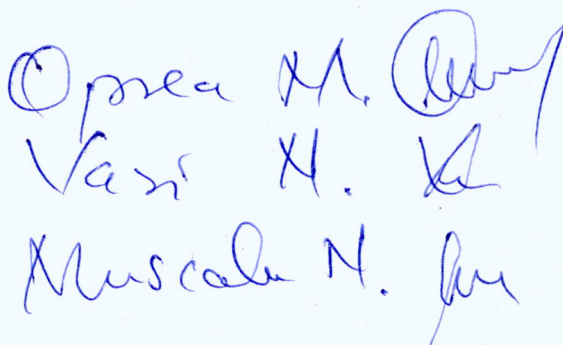 Oprea M.
Vasi N.
Muscalu N.